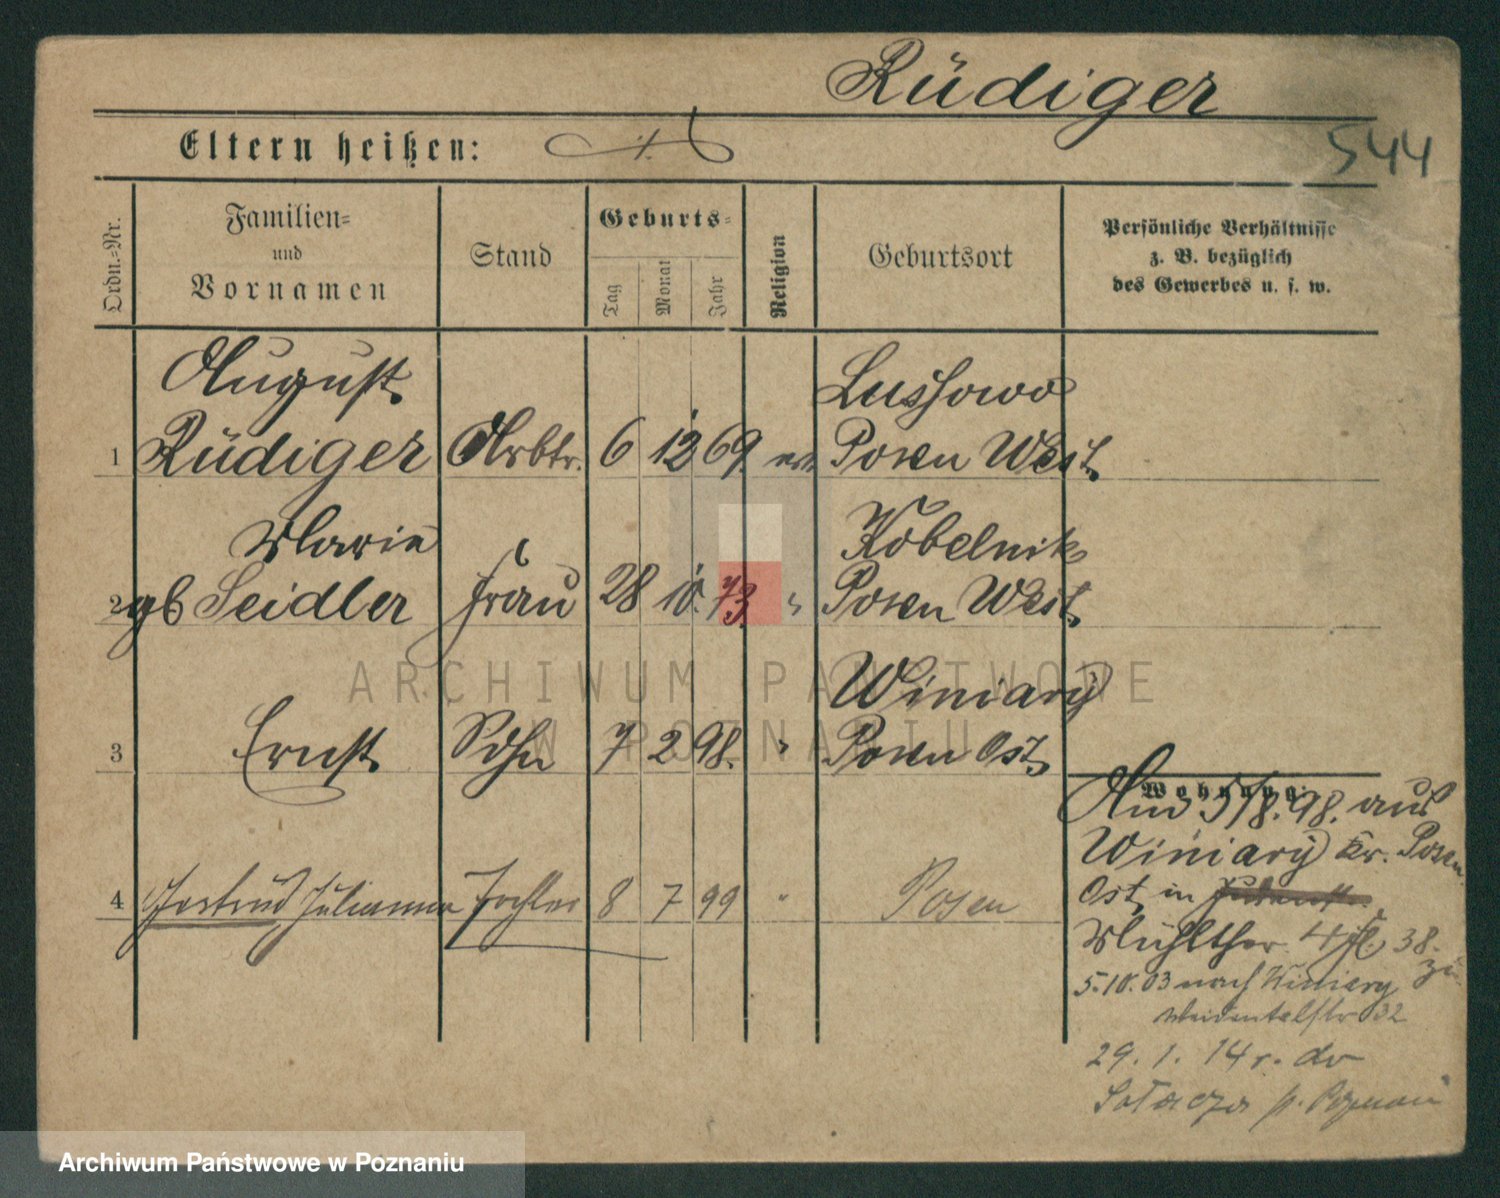 Rüdiger
544
Eltern heißen: ./.
Ordn.=Nr.
Familien=
und
Vornamen
Stand
Geburts=
Tag
Monat
Jahr
Religion
Geburtsort
Persönliche Verhältnisse
z. B. bezüglich
des Gewerbes u. s. w.
August Lussowo
1 Rüdiger Arbtr. 6 12 69. Posen West.
Marie Kobelnik
2 gb Seidler Frau 28 10. 73. " Posen West.
Winiary
3 Ernst Sohn 7 2 98. " Posen Ost.
Wohnung:
And 5/8.98. aus
Winiary Kr. Posen
Ost, in
4 Gertrud Julianna Tochter 8 7 99 " Posen
Mühlthor 38.
5.10.03 nach Winiary
32
29. 1. 14 r. do
Sołacza p. Poznań
ARCHIWUM PAŃSTWOWE
W POZNANIU
Archiwum Państwowe w Poznaniu